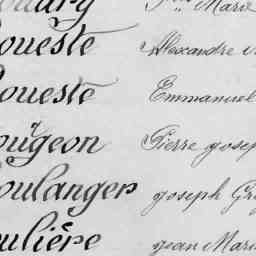 Marie
oueste Alexandre
oueste Emmanuel
ougeon Pierre josep
oulanger joseph Gr
ulière jean Mari